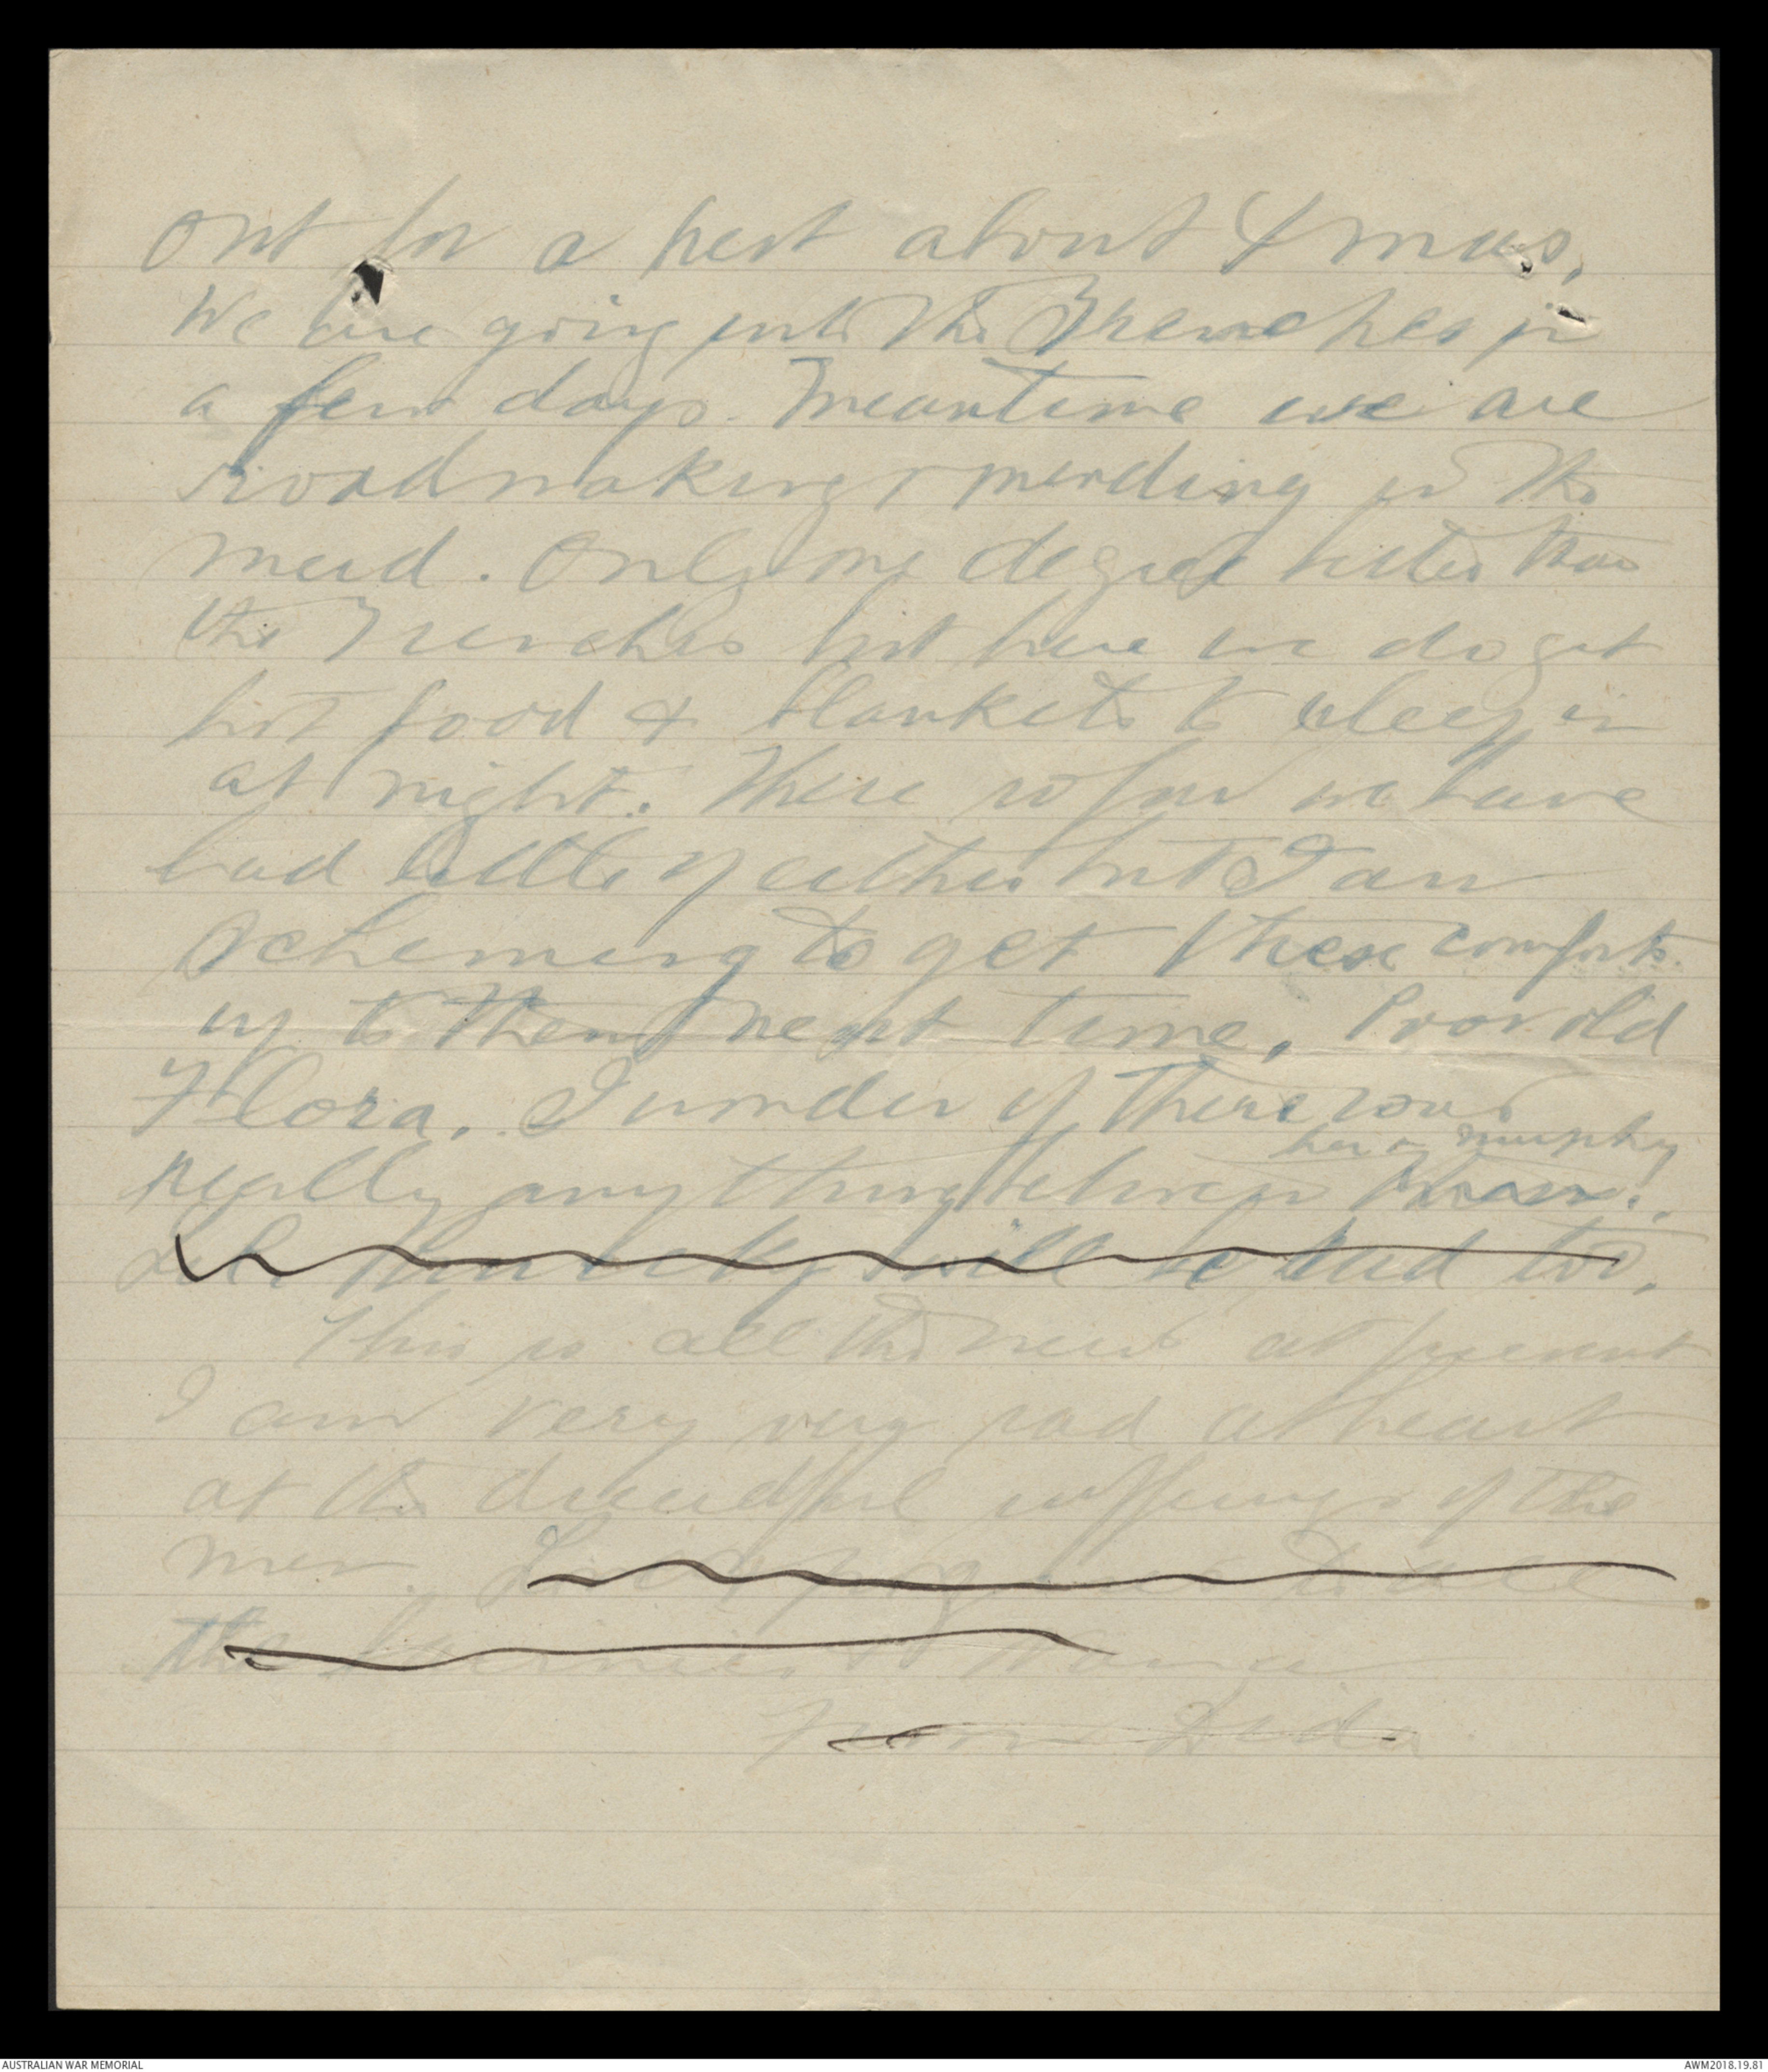 out for a rest about Xmas.
We are going into the Trenches in
a few days. Meantime we are
roadmaking & mending in the
mud. Only one degree better than
the Trenches but here we do get
hot food & blankets to sleep in
at night. There so far we have
had little of either but I am
scheming to get these comforts
up to them next time. Poor old
Flora. I wonder if there was
really anything between them.
her & Murphy
will be sad too.
This is all the news at present
I am very very sad at heart
at the dreadful sufferings of the
men.
the
From Dida
AUSTRALIAN WAR MEMORIAL
AWM2018.19.81